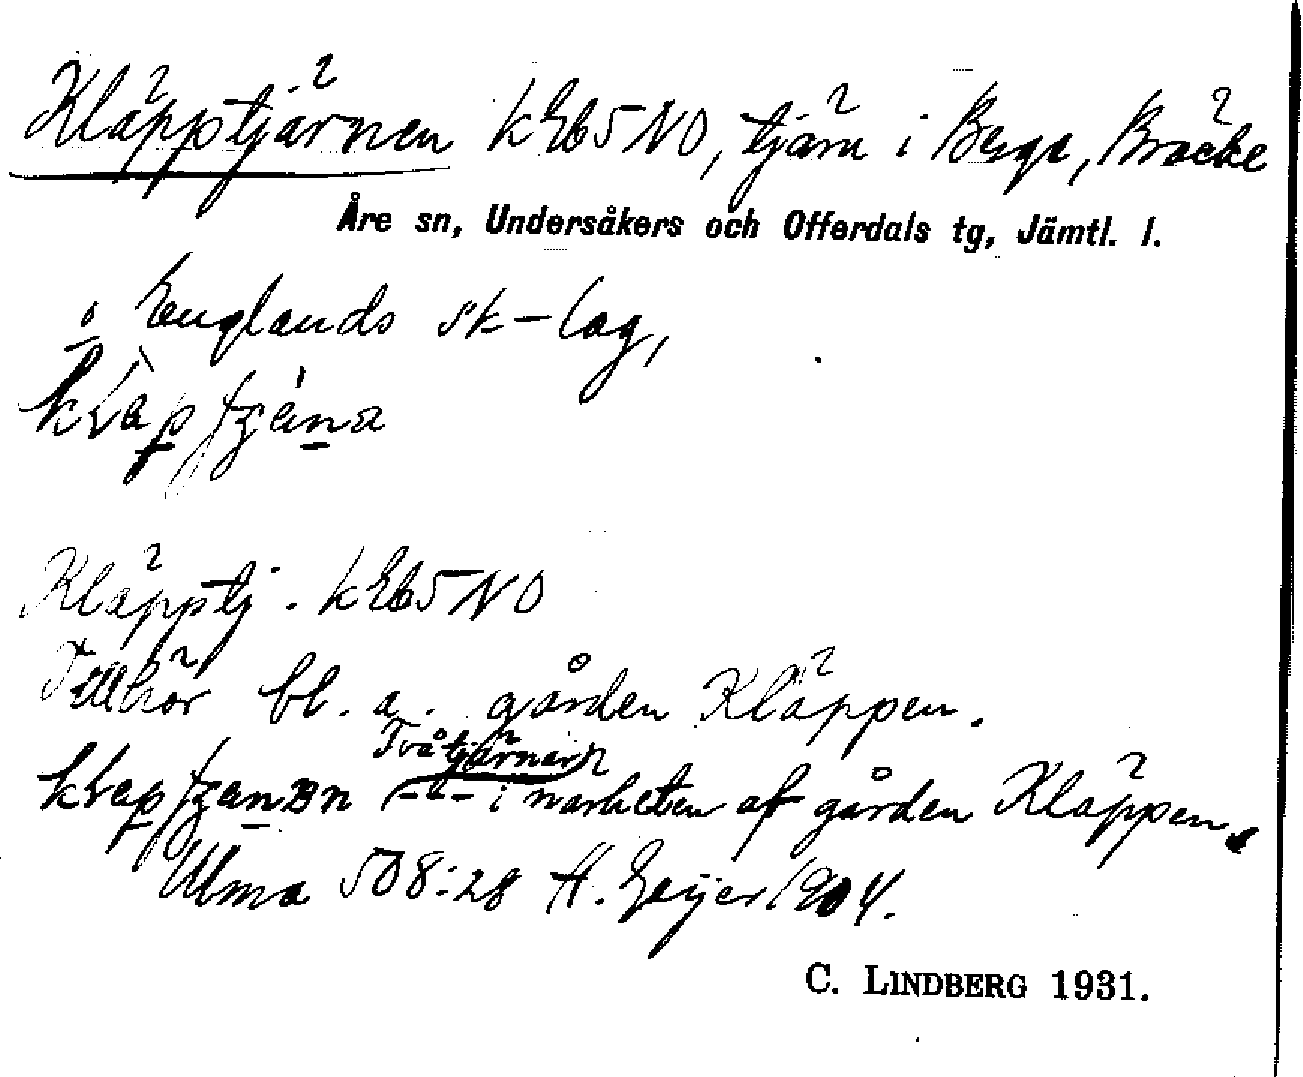 Kläpptjärnen k Eb5 NO, tjärn i Berge, Bräcke
Åre sn, Undersåkers och Offerdals tg, Jämtl. l.
o Englands sk-lag,

Kläpptj. k Eb5 NO
Tillhör bl. a. gården Kläppen.
Två tjärnar
i närheten af gården Kläppen.
Ulma 508:28 H. Geijer 1904.
C. LINDBERG 1931.